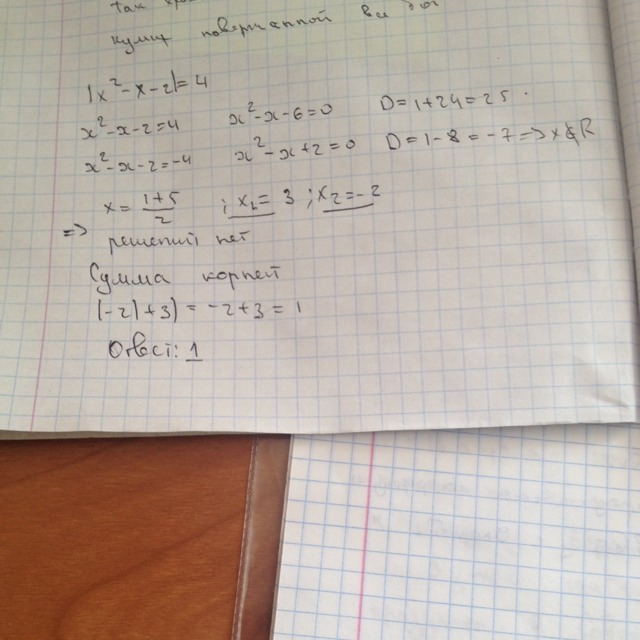 так
кулич поверхностной
|x²-x-2|=4
x²-x-2=4 x²-x-6=0 D=1+24=25.
x²-x-2=-4 x²-x+2=0 D=1-8=-7=>x∉R
x=(1+5)/2 ; x₁=3 ; x₂=-2
=> решений нет
Сумма корней
(-2)+3)=-2+3=1
Ответ: 1